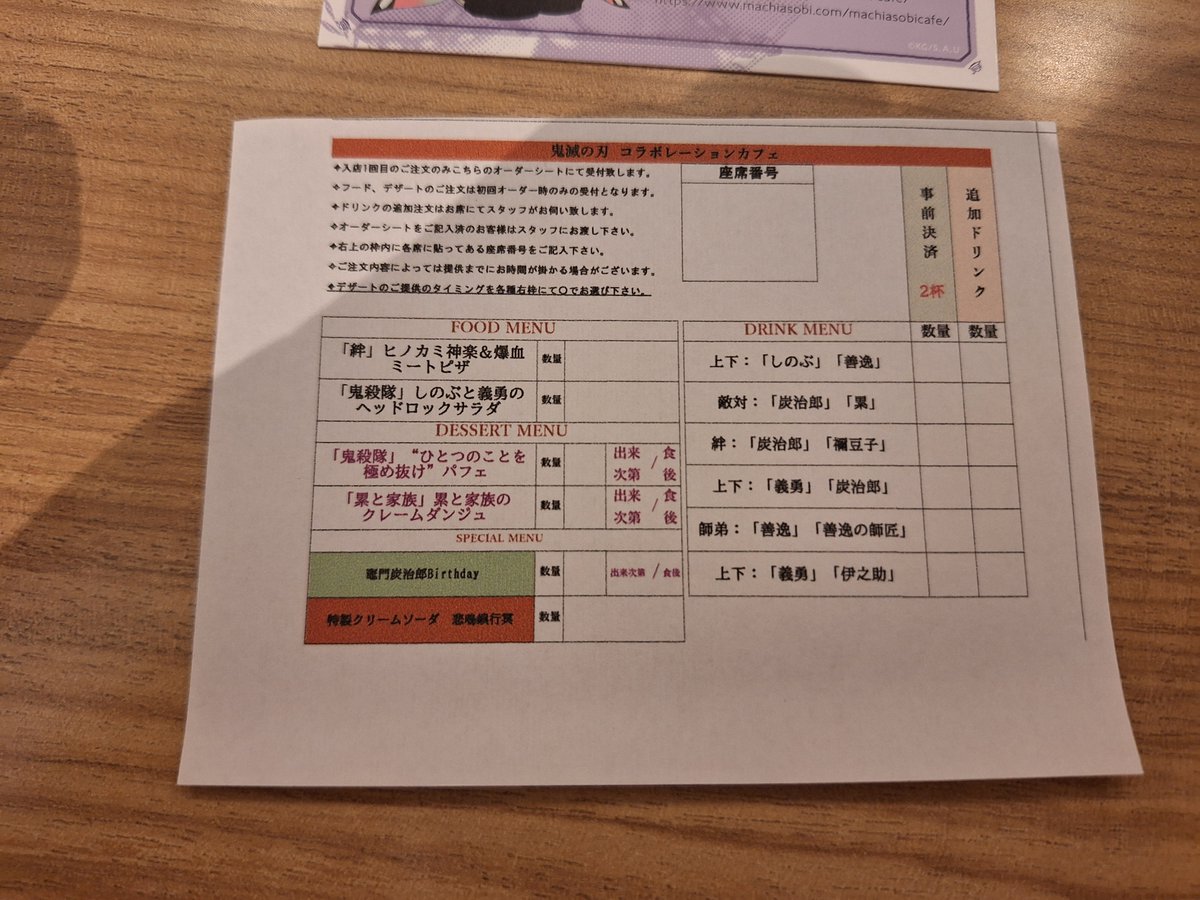 https://www.machiasobi.com/machiasobicafe/
©KG/S,A,U
鬼滅の刃 コラボレーションカフェ
✦入店1回目のご注文のみこちらのオーダーシートにて受付致します。
✦フード、デザートのご注文は初回オーダー時のみの受付となります。
✦ドリンクの追加注文はお席にてスタッフがお伺い致します。
✦オーダーシートをご記入済のお客様はスタッフにお渡し下さい。
✦右上の枠内に各席に貼ってある座席番号をご記入下さい。
✦ご注文内容によっては提供までにお時間が掛かる場合がございます。
✦デザートのご提供のタイミングを各種右枠にて〇でお選び下さい。
座席番号
事前決済 2杯
追加ドリンク
FOOD MENU
「絆」ヒノカミ神楽＆爆血
ミートピザ
数量
「鬼殺隊」しのぶと義勇の
ヘッドロックサラダ
数量
DESSERT MENU
「鬼殺隊」“ひとつのことを
極め抜け”パフェ
数量
出来次第 / 食後
「累と家族」累と家族の
クレームダンジュ
数量
出来次第 / 食後
SPECIAL MENU
竈門炭治郎Birthday
数量
出来次第 / 食後
特製クリームソーダ 悲鳴嶼行冥
数量
DRINK MENU
数量 数量
上下：「しのぶ」「善逸」
敵対：「炭治郎」「累」
絆：「炭治郎」「禰豆子」
上下：「義勇」「炭治郎」
師弟：「善逸」「善逸の師匠」
上下：「義勇」「伊之助」